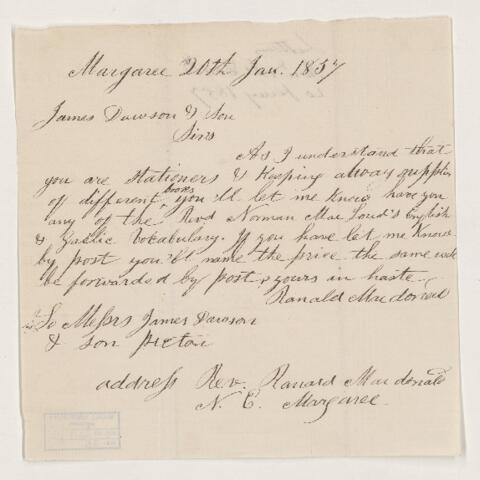 Margaree 20th Jan. 1857
James Dawson & Son
Sirs
As I understand that
you are stationers & Keeping alway supplies
of different books you'll let me know have you
any of the Revd Norman Mac Loud's English
& Gaelic Vocabulary. If you have let me Know
by post you'll name the price the same will
be forwarded by post & yours in haste
Ranald Macdonald
To Messrs James Dawson
& Son Pictou
address Rev. Ranald Macdonald
N. E. Margaree